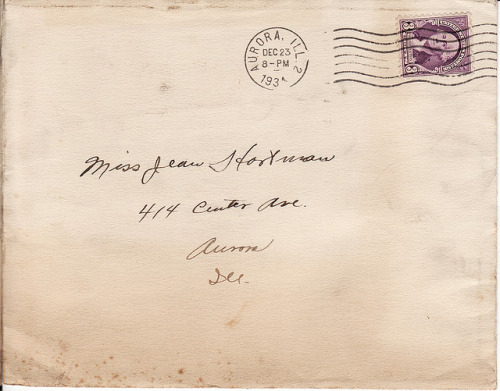 AURORA, ILL. 2
DEC 23
8-PM
193
Miss Jean Hartman
414 Center Ave.
Aurora
Ill.
3 3